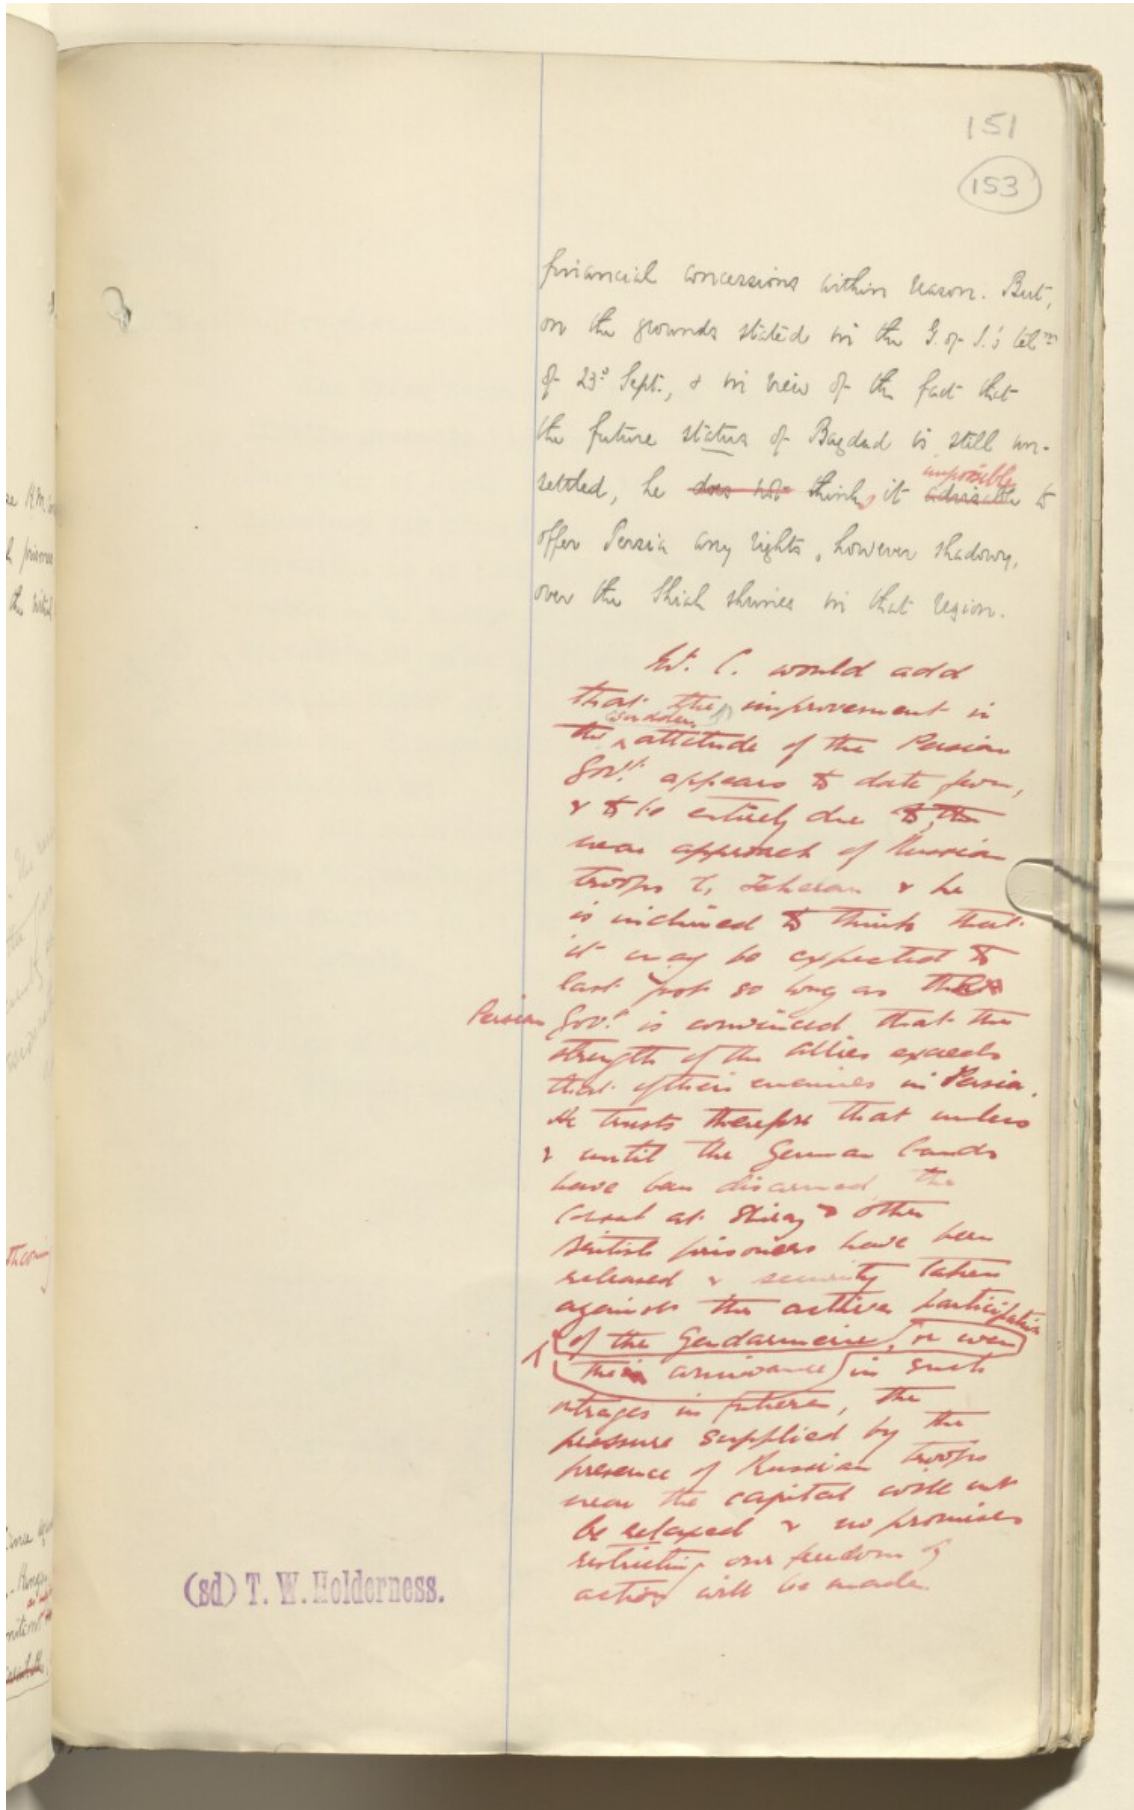 151
153
financial concessions within reason. But,
on the grounds stated in the G. of I.'s telm
of 23d Sept., & in view of the fact that
the future status of Bagdad is still un-
settled, he does not thinks it impossible advisable to
offer Persia any rights, however shadowy,
over the Shiah shrines in that region.
Mr. C. would add
that the improvement in
the sudden attitude of the Persian
Govt. appears to date from,
& to be entirely due to, the
near approach of Russian
troops to Teheran & he
is inclined to think that
it may be expected to
last just so long as the
Persian Govt. is convinced that the
strength of the allies exceeds
that of their enemies in Persia.
He trusts therefore that unless
& until the German bands
have been disarmed, the
Consul at Shiraz & other
British prisoners have been
released & security taken
against the active participation
of the Gendarmerie, or even
their connivance in such
outrages in future, the
pressure supplied by the
presence of Russian troops
near the capital will not
be relaxed & no promises
restricting our freedom of
action will be made.
(sd) T. W. Holderness.